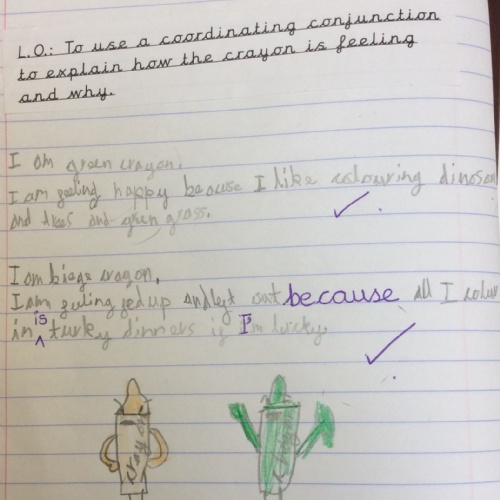 L.O.: To use a coordinating conjunction
to explain how the crayon is feeling
and why.
I am green crayon.
I am feeling happy because I like colouring dinosau
and trees and green grass.
I am biege crayon,
I am feeling fed up and left out because all I colour
in is turky dinners if I'm lucky.
crayola